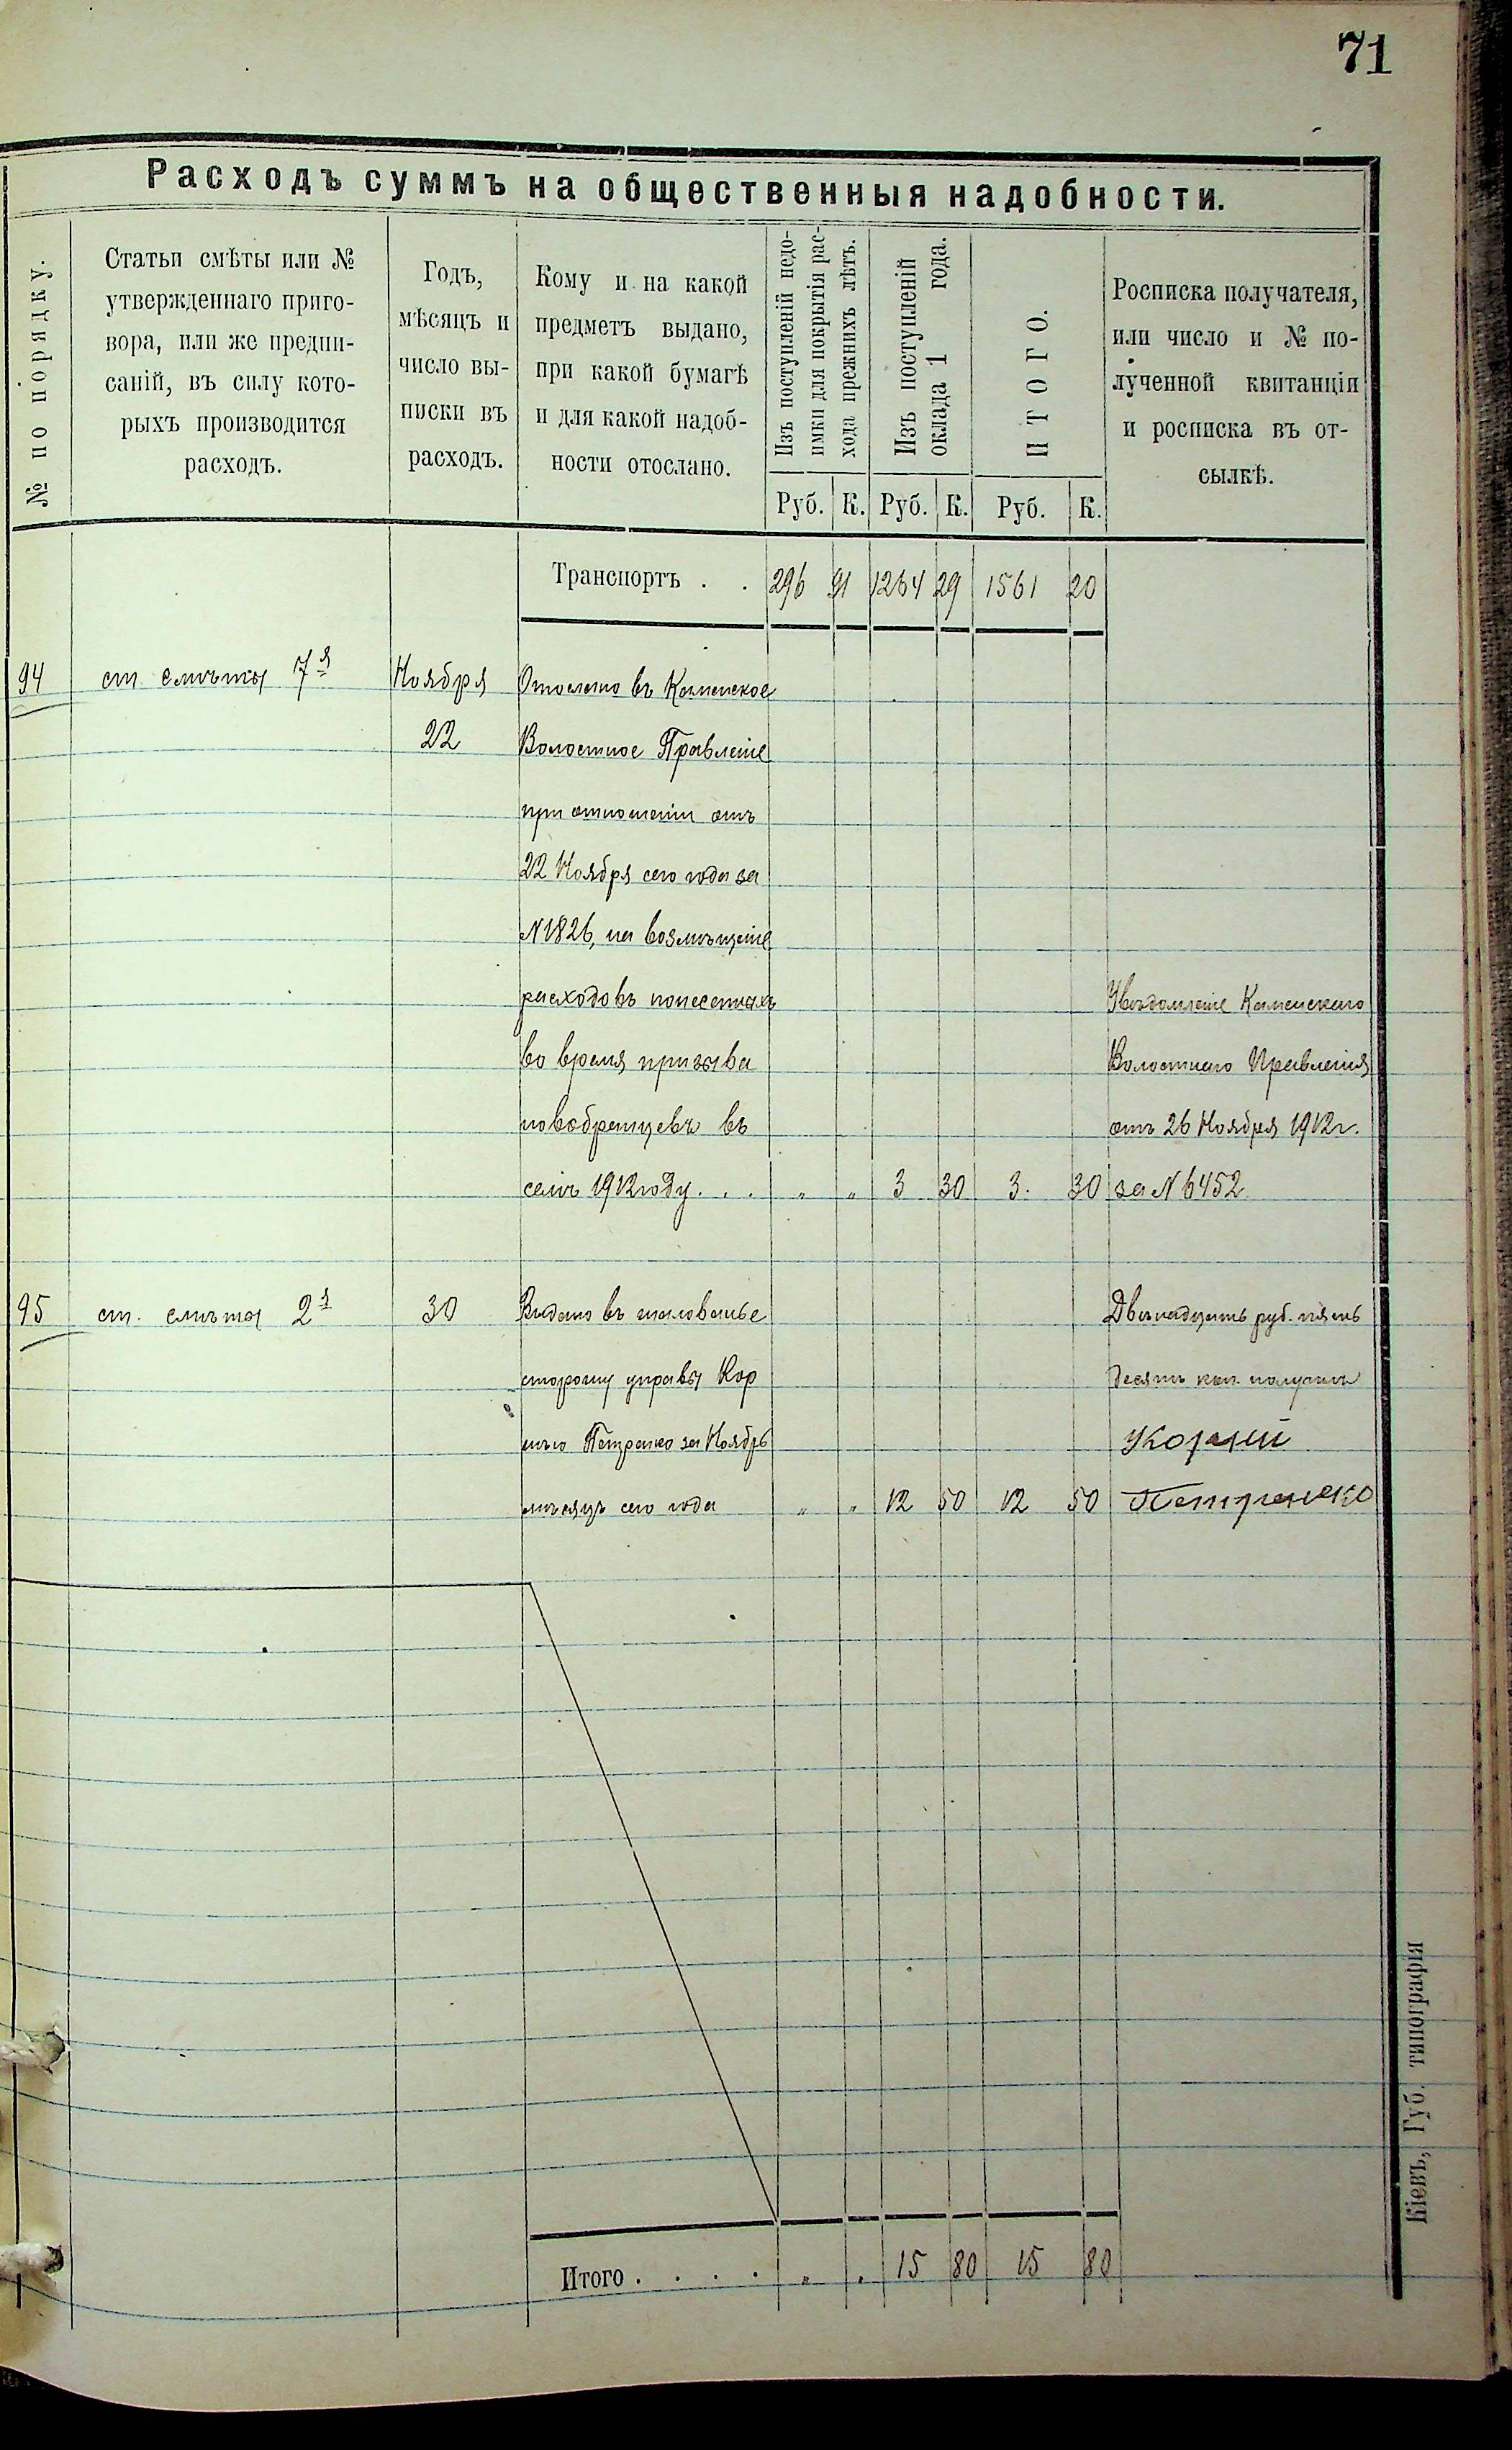 71
Расходъ суммъ на общественныя надобности.
№ по порядку.
Статьи смѣты или №
утвержденнаго приго-
вора, или же предпи-
саній, въ силу кото-
рыхъ производится
расходъ.
Годъ,
мѣсяцъ и
число вы-
писки въ
расходъ.
Кому и на какой
предметъ выдано,
при какой бумагѣ
и для какой надоб-
ности отослано.
Изъ поступленій недо-
имки для покрытія рас-
хода прежнихъ лѣтъ.
Изъ поступленій
оклада 1 года.
ИТОГО.
Росписка получателя,
или число и № по-
лученной квитанціи
и росписка въ от-
сылкѣ.
Руб. К. Руб. К. Руб. К.
Транспортъ . . 296 91 1264 29 1561 20
94 ст смѣты 7я Ноября Отослано въ Каменское
22 Волостное Правленіе
при отношеніи отъ
22 Ноября сего года за
N 1826, на возмѣщеніе
расходовъ понесенныхъ Увѣдомленіе Каменскаго
во время призыва Волостнаго Правленія
новобранцевъ въ отъ 26 Ноября 1912 г.
семъ 1912 году. . . „ „ 3 30 3. 30 за N 6452
95 ст. смѣты 2я 30 Выдано въ жалованье Двѣнадцать руб. пять
сторожу управы Кор десят коп. получилъ
нѣю Петренко за Ноябрь Корній
мѣсяцъ сего года „ „ 12 50 12 50 Петренко
Итого . . . . „ „ 15 80 15 80
Кіевъ, Губ. типографія